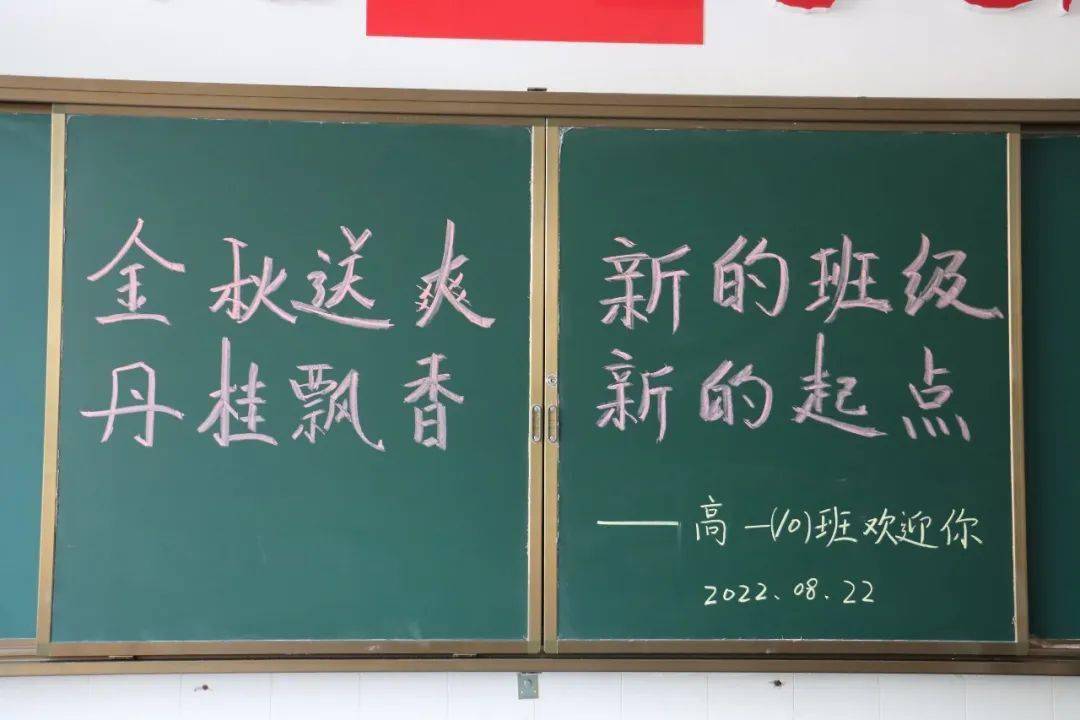 金秋送爽
丹桂飘香
新的班级
新的起点
——高一(10)班欢迎你
2022.08.22